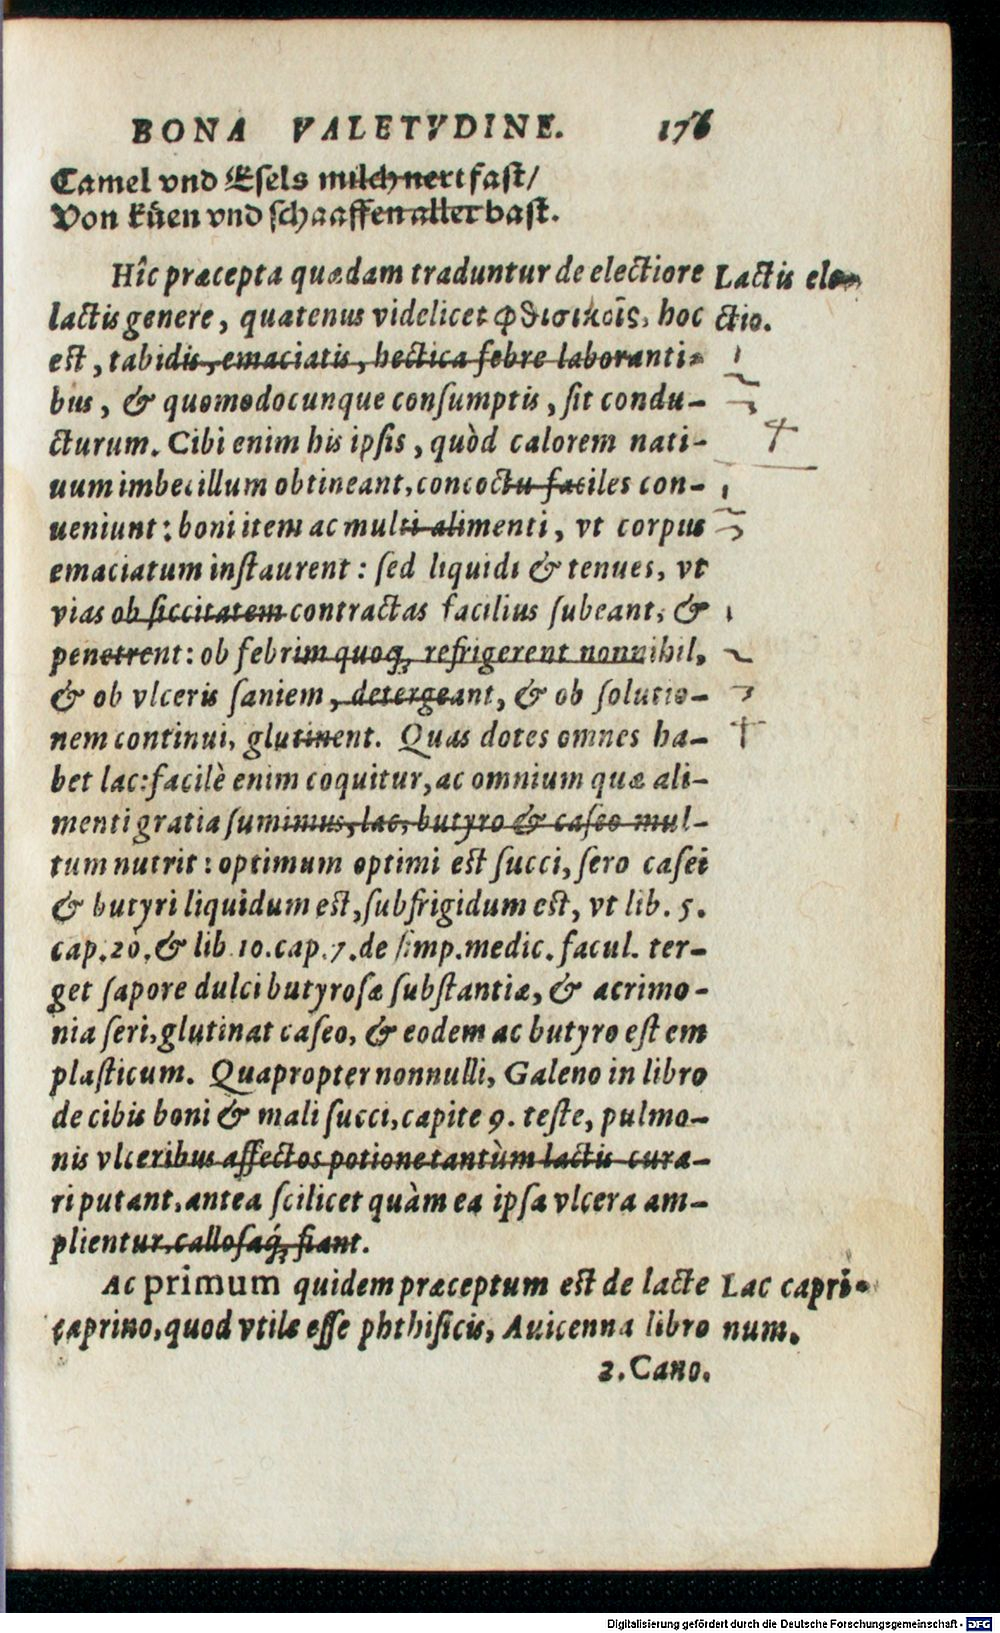 BONA VALETVDINE. 176
Camel vnd Esels milch nert fast/
Von küen vnd schaaffen aller bast.
Hîc præcepta quædam traduntur de electiore
lactis genere, quatenus videlicet φθισικοῖς, hoc
est, tabidis, emaciatis, hectica febre laboranti-
bus, & quomodocunque consumptis, sit condu-
cturum. Cibi enim his ipsis, quòd calorem nati-
uum imbecillum obtineant, concoctu faciles con-
ueniunt: boni item ac multi alimenti, vt corpus
emaciatum instaurent: sed liquidi & tenues, vt
vias ob siccitatem contractas facilius subeant, &
penetrent: ob febrim quoq; refrigerent nonnihil,
& ob vlceris saniem, detergeant, & ob solutio-
nem continui, glutinent. Quas dotes omnes ha-
bet lac: facilè enim coquitur, ac omnium quæ ali-
menti gratia sumimus, lac, butyro & caseo mul-
tum nutrit: optimum optimi est succi, sero casei
& butyri liquidum est, subfrigidum est, vt lib. 5.
cap. 20. & lib 10. cap. 7. de simp. medic. facul. ter-
get sapore dulci butyrosæ substantiæ, & acrimo-
nia seri, glutinat caseo, & eodem ac butyro est em
plasticum. Quapropter nonnulli, Galeno in libro
de cibis boni & mali succi, capite 9. teste, pulmo-
nis vlceribus affectos potione tantùm lactis cura-
ri putant, antea scilicet quàm ea ipsa vlcera am-
plientur, callosaq́; fiant.
Ac primum quidem præceptum est de lacte
caprino, quod vtile esse phthisicis, Auicenna libro
2. Cano.
Lactis ele-
ctio.
Lac capri-
num.
Digitalisierung gefördert durch die Deutsche Forschungsgemeinschaft - DFG